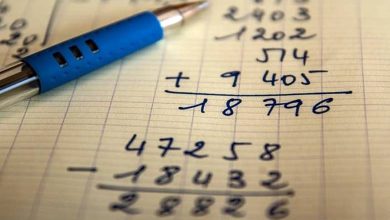 2903
1202
514
+ 9 405
18 796
47258
- 18432
28826